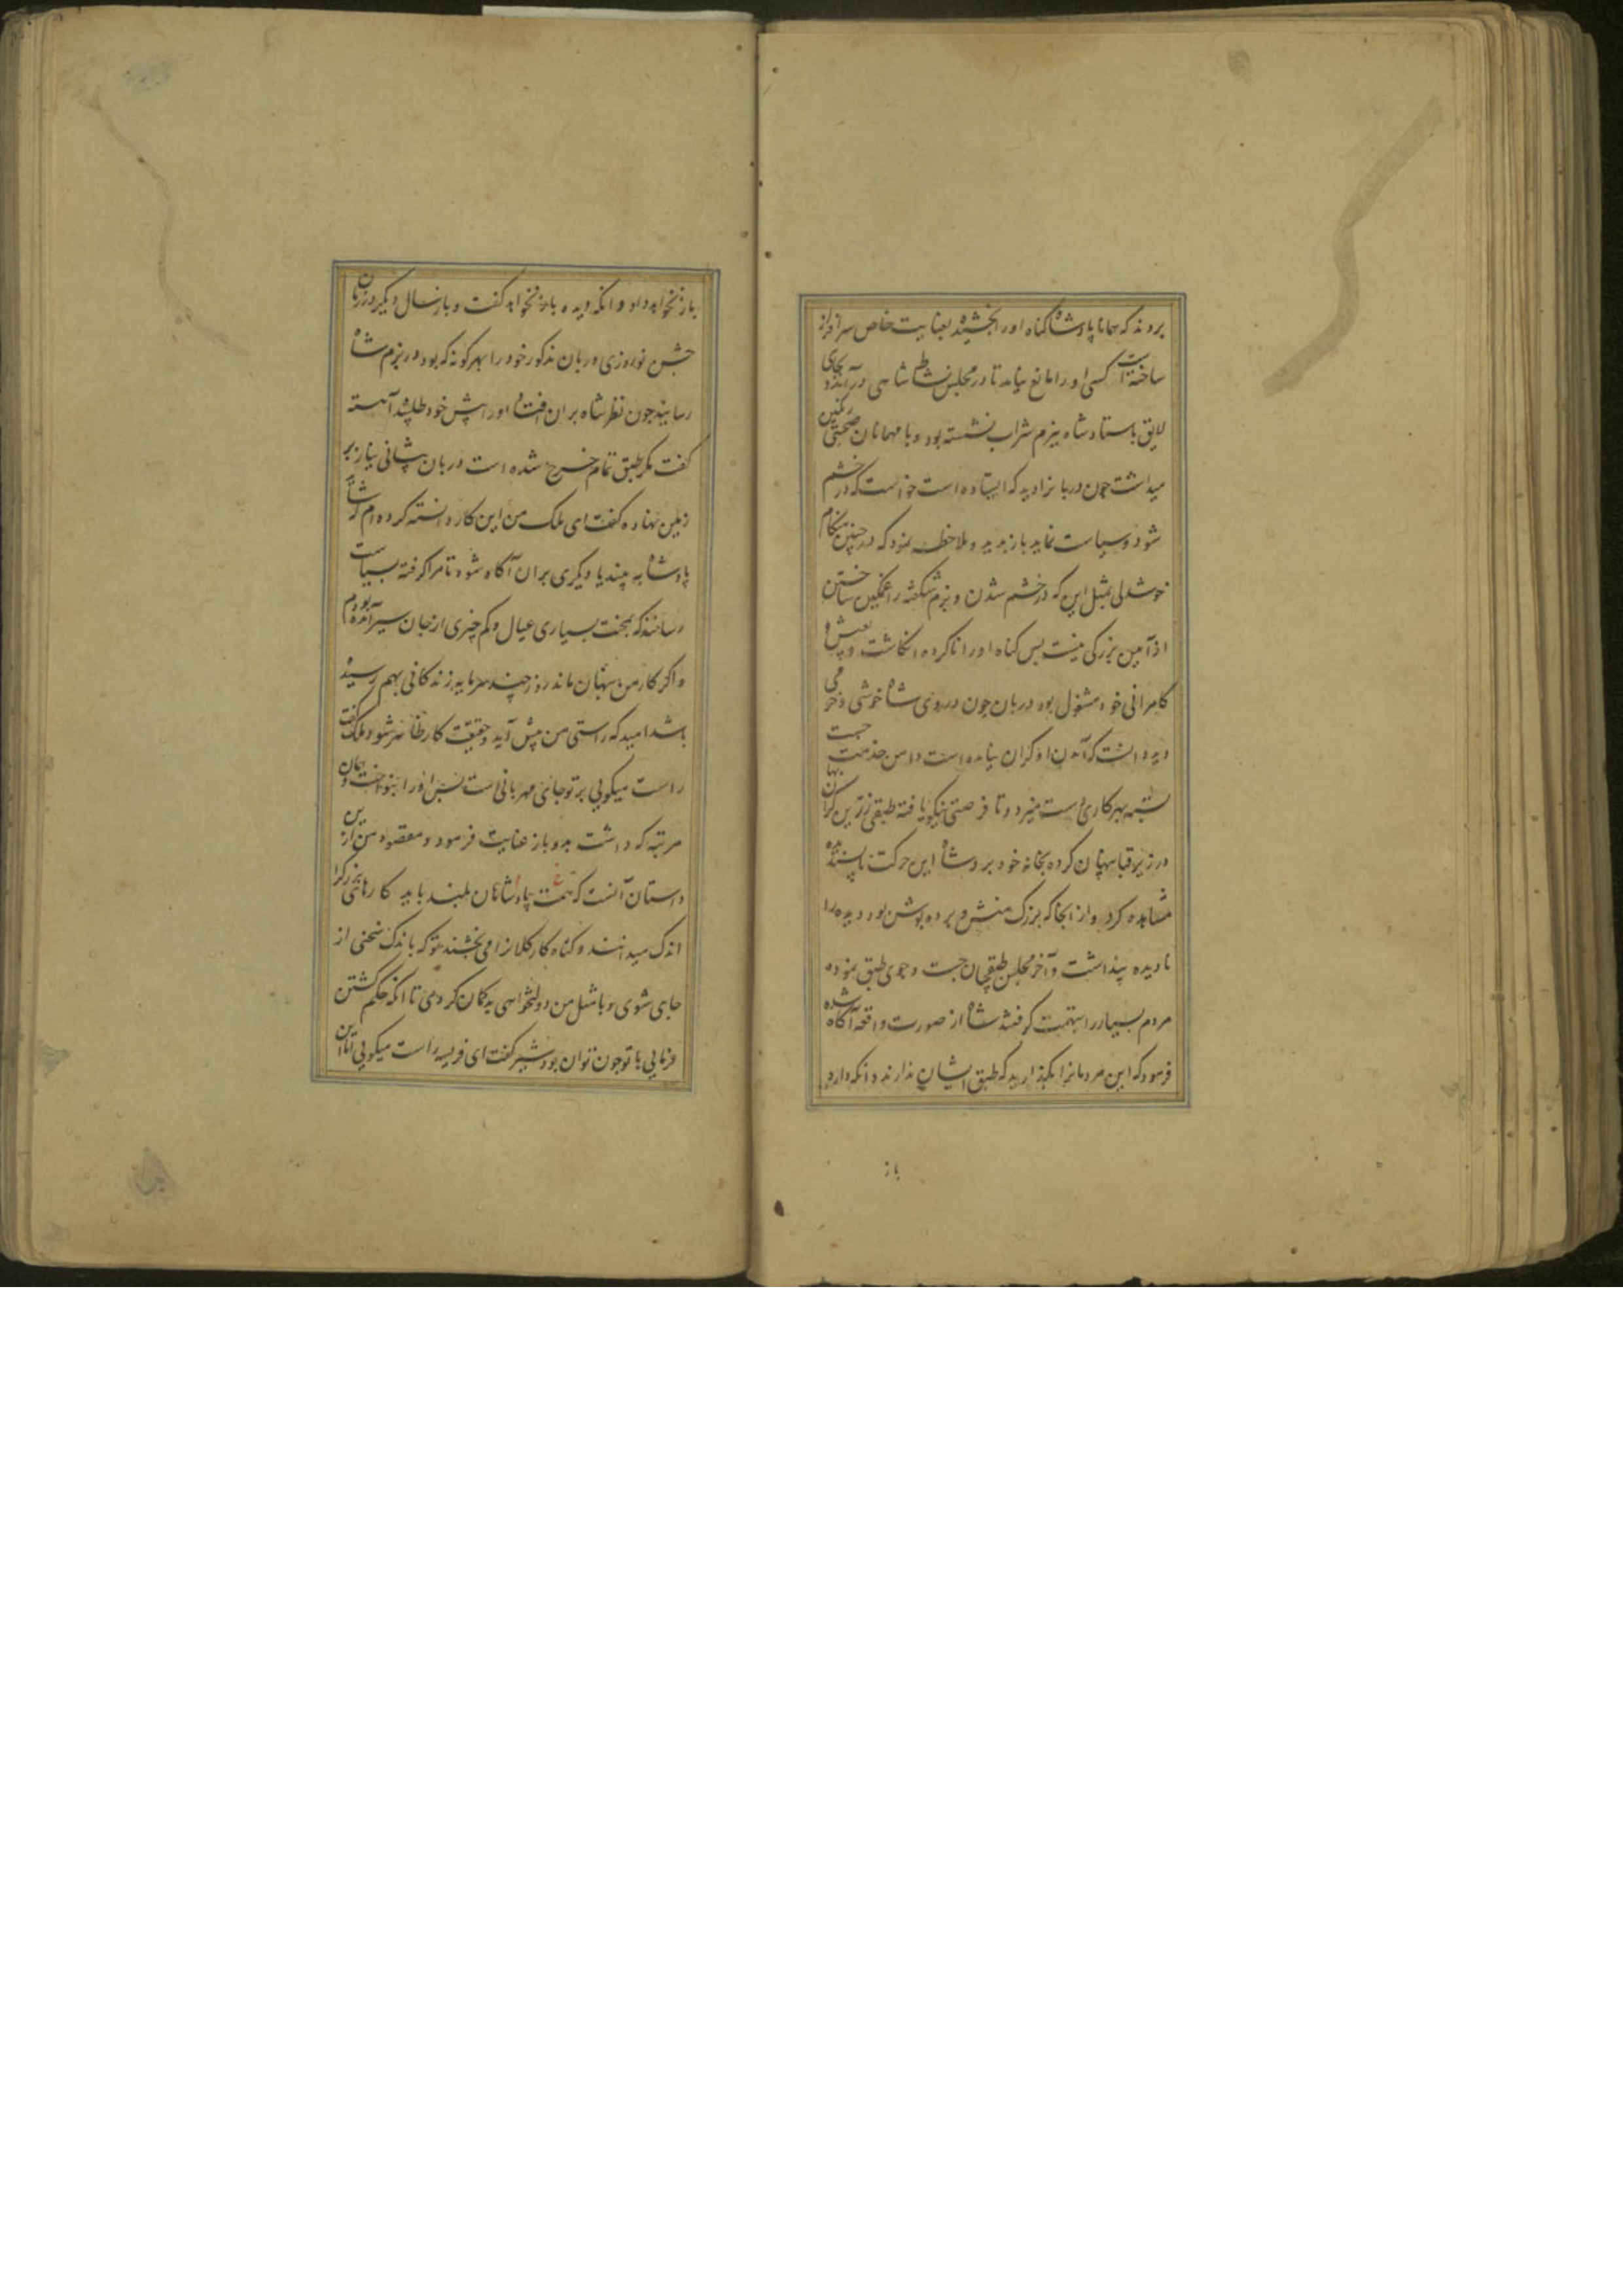 بردند که همانا پادشاه کناه اورا بخشیده بعنایت خاص سرافراز
ساخته است کسی اورا مانع نیامد تا در مجلس نشاط شاهی درآمده و بجای
لایق باستاد شاه ببزم شراب نشسته بود و با مهمانان صحبتی رنکین
میداشت چون دربانرا دید که ایستاده است خواست که در خشم
شود و سیاست نماید باز بدید و ملاحظه نمود که در چنین هنکام
خوشدلی بمثل این که در خشم شدن و بزم شکفته را غمکین ساختن
از آیین بزرکی نیست پس کناه اورا ناکرده انکاشت و بعیش و
کامرانی خود مشغول بود دربان چون در روی شاه خوشی و خرمی
دید دانست که آمدن او کران نیامده است دامن خدمت چست
بسته بهر کاری دست میزد و تا فرصتی نیکو یافته طبقی زرین کران بها
در زیر قبا پنهان کرده بخانه خود برد شاه این حرکت ناپسندیده
مشاهده کرد و از انجا که بزرک منش و پرده پوش بود دیده را
نادیده پنداشت و آخر مجلس طبقچیان جست و جوی طبق نموده
مردم بسیار را بتهمت کرفتند شاه از صورت واقعه آکاه شده
فرمود که این مردمانرا بکذارید که طبق ایشان ندارند و انکه دارد
باز
باز نخواهد داد و انکه دیده باز نخواهد کفت و باز سال دیکر در زمان
جشن نوروزی دربان مذکور خود را بهر کونه که بود در بزم شاه
رسانید چون نظر شاه بران افتاد اورا پیش خود طلبید آهسته
کفت مکر طبق تمام خرج شده است دربان پیشانی نیاز بر
زمین نهاده کفت ای ملک من این کار دانسته کرده ام که شاید
پادشاه بیند یا دیکری بران آکاه شود تا مرا کرفته بسیاست
رسانند که بمحنت بسیاری عیال و کم چیزی از جان سیر آمده بودم
و اکر کار من پنهان ماند روز چند سرمایه زندکانی بهم رسیده
باشد امید که راستی من پیش آید و حقیقت کار ظاهر شود ملک کفت
راست میکویی بر تو جای مهربانی است پس اورا بنواخت و همان
مرتبه که داشت بدو باز عنایت فرمود و مقصود من از این
داستان آنست که همت پادشاهان بلند باید کارهای بزرک را
اندک میدانند و کناه کار کلانرا می بخشند تو که باندک سخنی از
جای شوی و با مثل من دولتخواهی بدکمان کردی تا انکه حکم کشتن
فرمایی با تو چون توان بود شیر کفت ای فریسه راست میکویی اما این